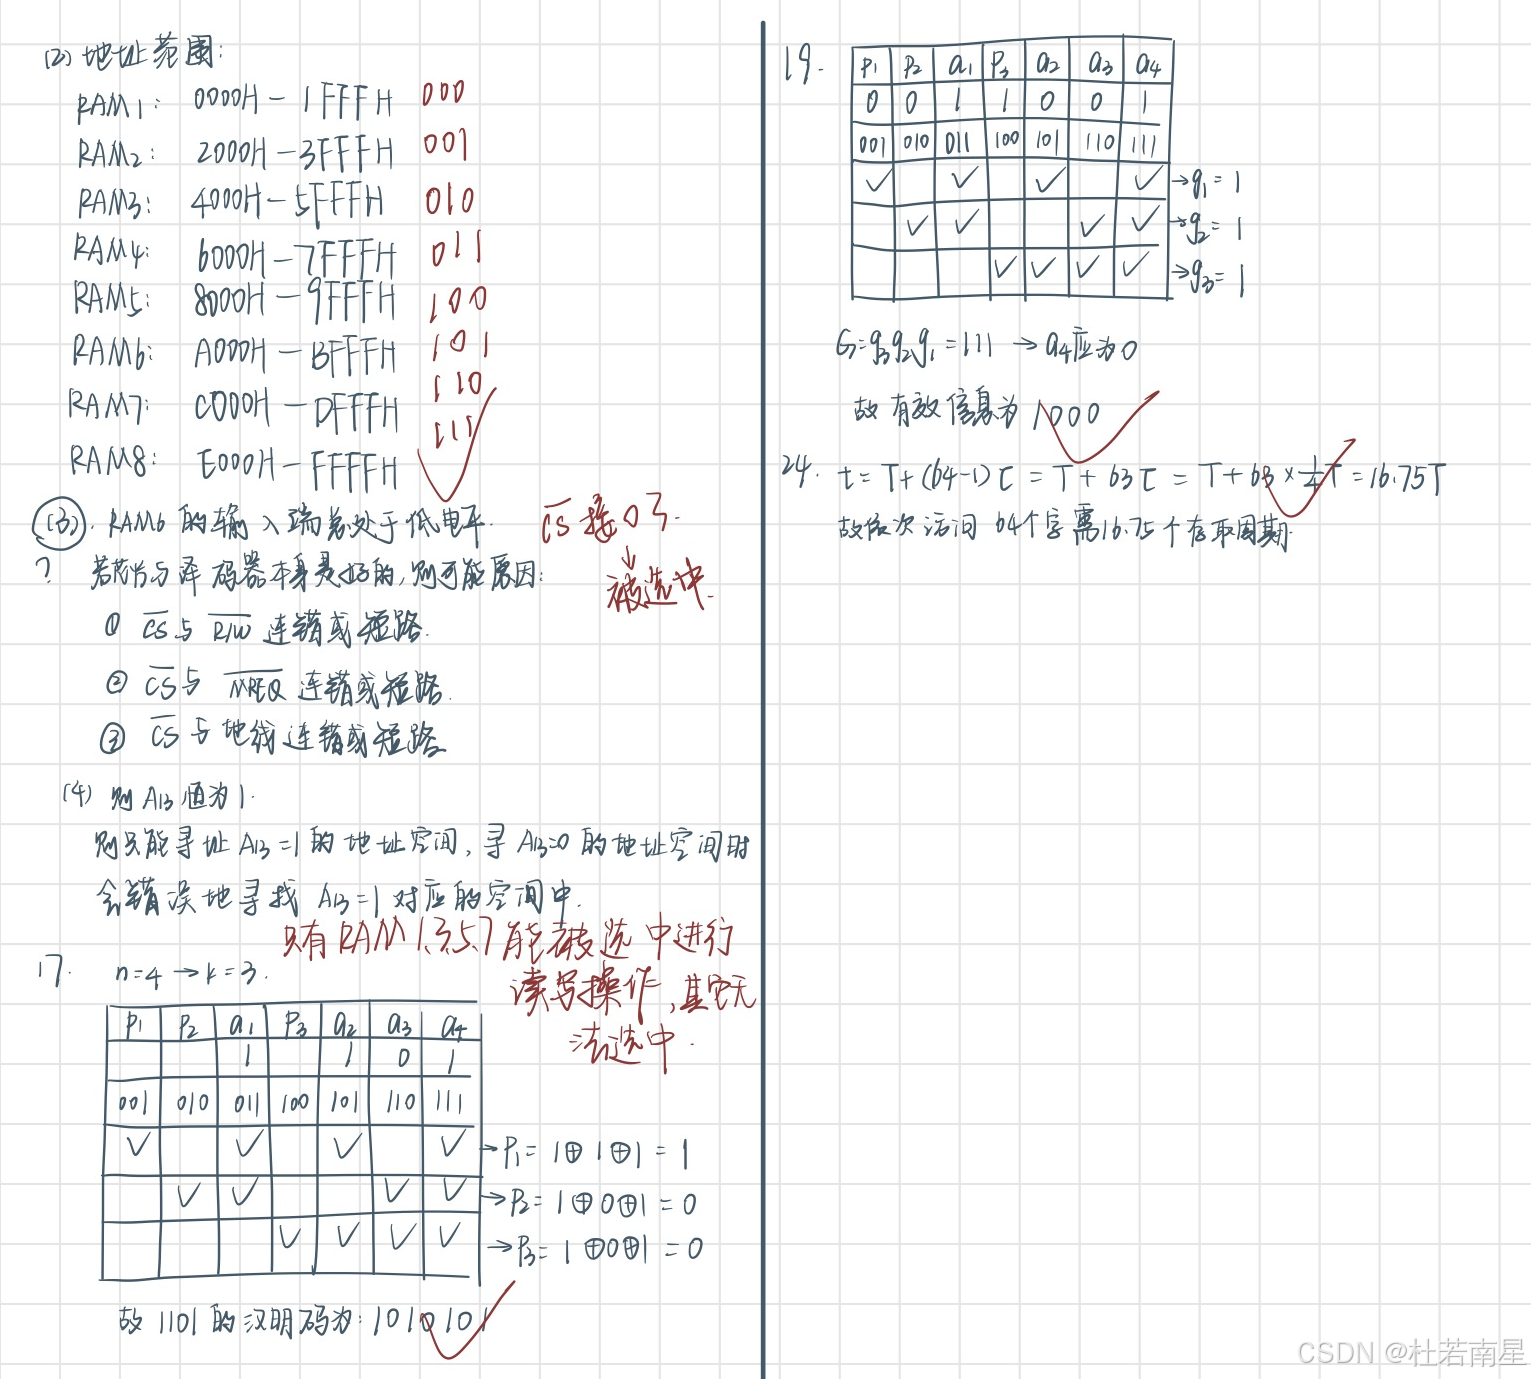 (2) 地址范围:
RAM1: 0000H — 1FFFH 000
RAM2: 2000H — 3FFFH 001
RAM3: 4000H — 5FFFH 010
RAM4: 6000H — 7FFFH 011
RAM5: 8000H — 9FFFH 100
RAM6: A000H — BFFFH 101
RAM7: C000H — DFFFH 110
RAM8: E000H — FFFFH 111
(3). RAM6 的输入端总处于低电平.
CS 接 0 了.
↓
被选中.
? 若芯片与译码器本身是好的,则可能原因:
① CS 与 R/W 连错或短路.
② CS 与 MREQ 连错或短路.
③ CS 与地线连错或短路
(4) 则 A13 值为 1.
则只能寻址 A13=1 的地址空间, 寻 A13=0 的地址空间时
会错误地寻找 A13=1 对应的空间中.
只有 RAM 1.3.5.7 能被选中进行
读写操作,其它无
法选中.
17. n=4 → k=3.
P1 P2 a1 P3 a2 a3 a4
1 1 0 1
001 010 011 100 101 110 111
✓ ✓ ✓ ✓ → P1 = 1⊕1⊕1 = 1
✓ ✓ ✓ ✓ → P2 = 1⊕0⊕1 = 0
✓ ✓ ✓ ✓ → P3 = 1⊕0⊕1 = 0
故 1101 的汉明码为: 1010101
19.
P1 P2 a1 P3 a2 a3 a4
0 0 1 1 0 0 1
001 010 011 100 101 110 111
✓ ✓ ✓ ✓ → g1 = 1
✓ ✓ ✓ ✓ → g2 = 1
✓ ✓ ✓ ✓ → g3 = 1
G = g3g2g1 = 111 → a4应为0
故有效信息为 1000
24. t = T + (64-1)τ = T + 63τ = T + 63 × 1/4 T = 16.75T
故依次访问 64个字需16.75个存取周期.
CSDN @杜若南星